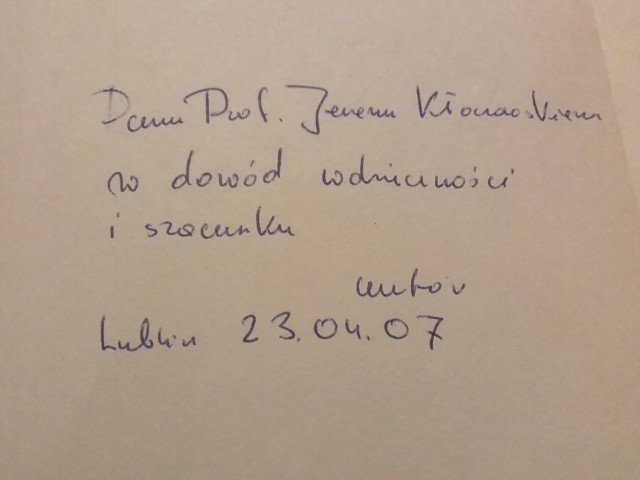 Panu Prof. Jeremu Kłonowskiemu
w dowód wdzięczności
i szacunku
autor
Lublin 23.04.07